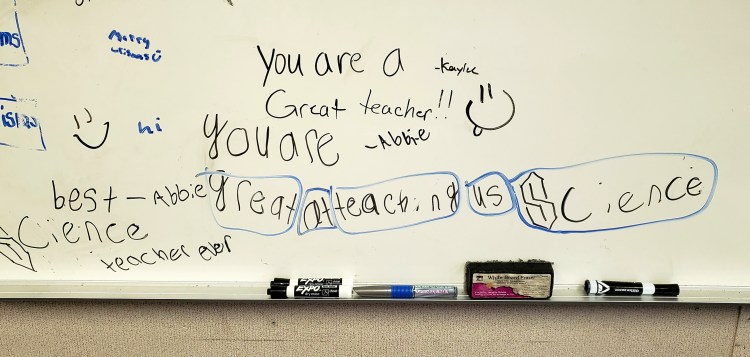 ms
Merry
hi
You are a -Kaylee
Great teacher!!
you are -Abbie
great at teaching us Science
best - Abbie
Science
teacher ever
EXPO
EXPO
White Board Eraser